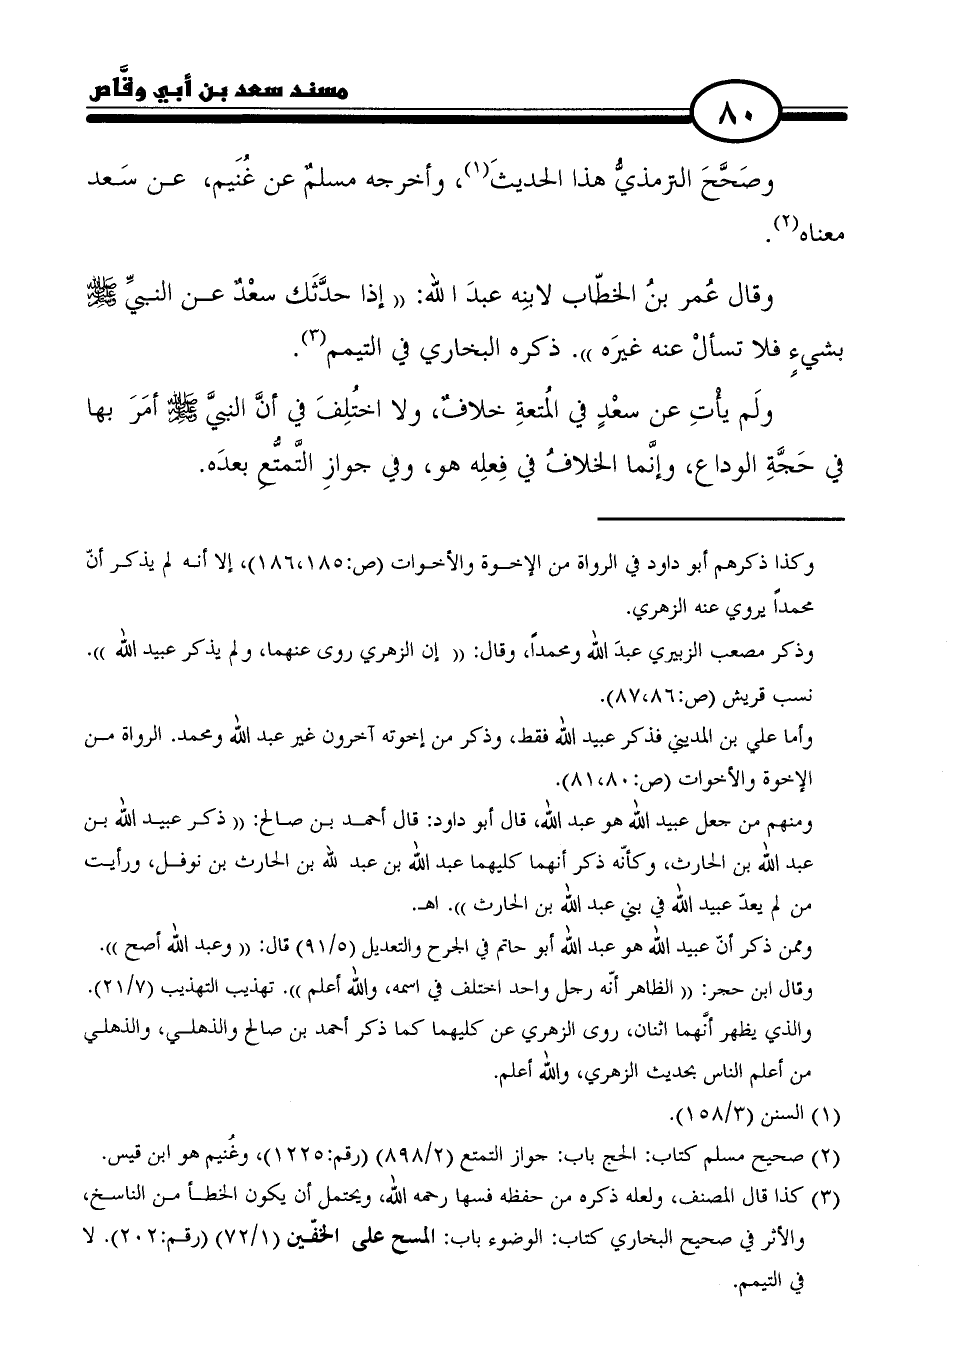 مسند سعد بن أبي وقَّاص
٨٠
وصَحَّحَ الترمذيُّ هذا الحديثَ(١)، وأخرجه مسلمٌ عن غُنَيم، عن سَعد
معناه(٢).
وقال عُمر بنُ الخطّاب لابنِه عبدَ الله: « إذا حدَّثَك سعْدٌ عن النبيِّ ﷺ
بشيءٍ فلا تسألْ عنه غيرَه ». ذكره البخاري في التيمم(٣).
ولَم يأْتِ عن سعْدٍ في المُتعةِ خلافٌ، ولا اختُلِفَ في أنَّ النبيَّ ﷺ أمَرَ بها
في حَجَّةِ الوداع، وإنَّما الخلافُ في فِعلِه هو، وفي جوازِ التَّمتُّعِ بعدَه.
وكذا ذكرهم أبو داود في الرواة من الإخوة والأخوات (ص:١٨٦،١٨٥)، إلا أنه لم يذكر أنّ
محمداً يروي عنه الزهري.
وذكر مصعب الزبيري عبدَ الله ومحمداً، وقال: « إن الزهري روى عنهما، ولم يذكر عبيد الله ».
نسب قريش (ص:٨٧،٨٦).
وأما علي بن المديني فذكر عبيد الله فقط، وذكر من إخوته آخرون غير عبد الله ومحمد. الرواة من
الإخوة والأخوات (ص:٨١،٨٠).
ومنهم من جعل عبيد الله هو عبد الله، قال أبو داود: قال أحمد بن صالح: « ذكر عبيد الله بن
عبد الله بن الحارث، وكأنّه ذكر أنهما كليهما عبد الله بن عبد لله بن الحارث بن نوفل، ورأيت
من لم يعدّ عبيد الله في بني عبد الله بن الحارث ». اهـ.
وممن ذكر أنّ عبيد الله هو عبد الله أبو حاتم في الجرح والتعديل (٩١/٥) قال: « وعبد الله أصح ».
وقال ابن حجر: « الظاهر أنّه رجل واحد اختلف في اسمه، والله أعلم ». تهذيب التهذيب (٢١/٧).
والذي يظهر أنَّهما اثنان، روى الزهري عن كليهما كما ذكر أحمد بن صالح والذهلي، والذهلي
من أعلم الناس بحديث الزهري، والله أعلم.
(١) السنن (١٥٨/٣).
(٢) صحيح مسلم كتاب: الحج باب: جواز التمتع (٨٩٨/٢) (رقم:١٢٢٥)، وغُنيم هو ابن قيس.
(٣) كذا قال المصنف، ولعله ذكره من حفظه فسها رحمه الله، ويحتمل أن يكون الخطأ من الناسخ،
والأثر في صحيح البخاري كتاب: الوضوء باب: المسح على الخفّين (٧٢/١) (رقم:٢٠٢). لا
في التيمم.